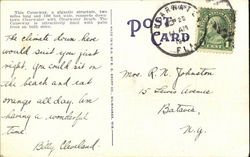 This Causeway, a gigantic structure, two
miles long and one mile wide, connects down-
town Clearwater with Clearwater Beach. The
Causeway is attractively lined with palm
trees on both sides.
POST
CARD
FLA
1
The climate down here
would suit you just
right. You could sit on
the beach and eat
oranges all day. Am
having a wonderful
time
Billy Cleveland.
Mrs. R. N. Johnston
15 Avenue
Batavia,
N.Y.